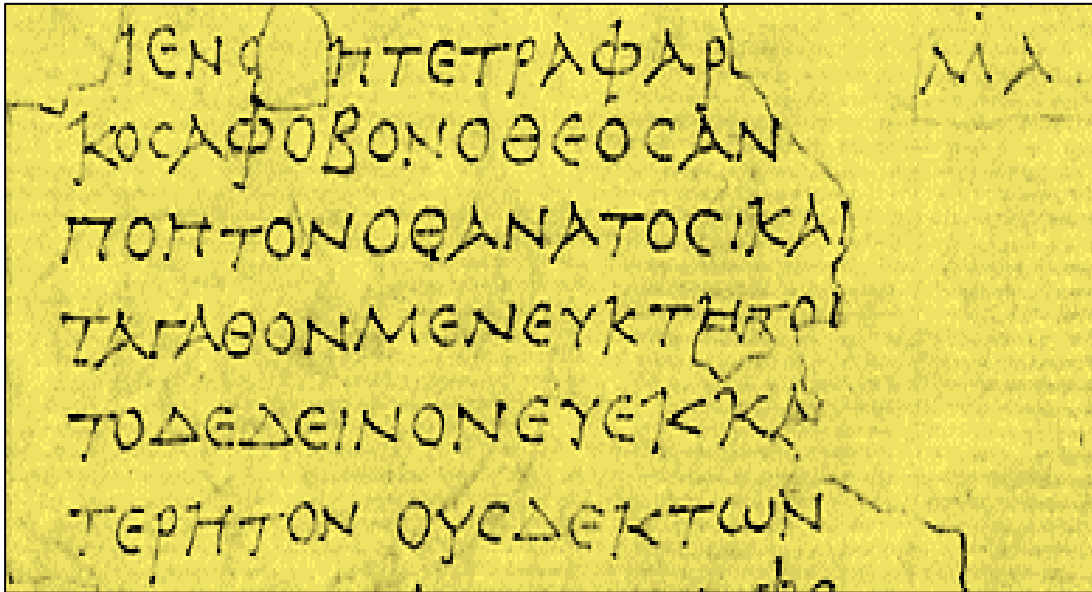 ΙΕΝϹ ΗΤΕΤΡΑΦΑΡ ΜΑ
ΚΟϹΑΦΟΒΟΝΟΘΕΟϹΑΝ
ΠΟΗΤΟΝΟΘΑΝΑΤΟϹΙΚΑΙ
ΤΑΓΑΘΟΝΜΕΝΕΥΚΤΗΤΟΙ
ΤΟΔΕΔΕΙΝΟΝΕΥΕΚΚΑ
ΤΕΡΗΤΟΝ ΟΥϹΔΕΚΤΩΝ